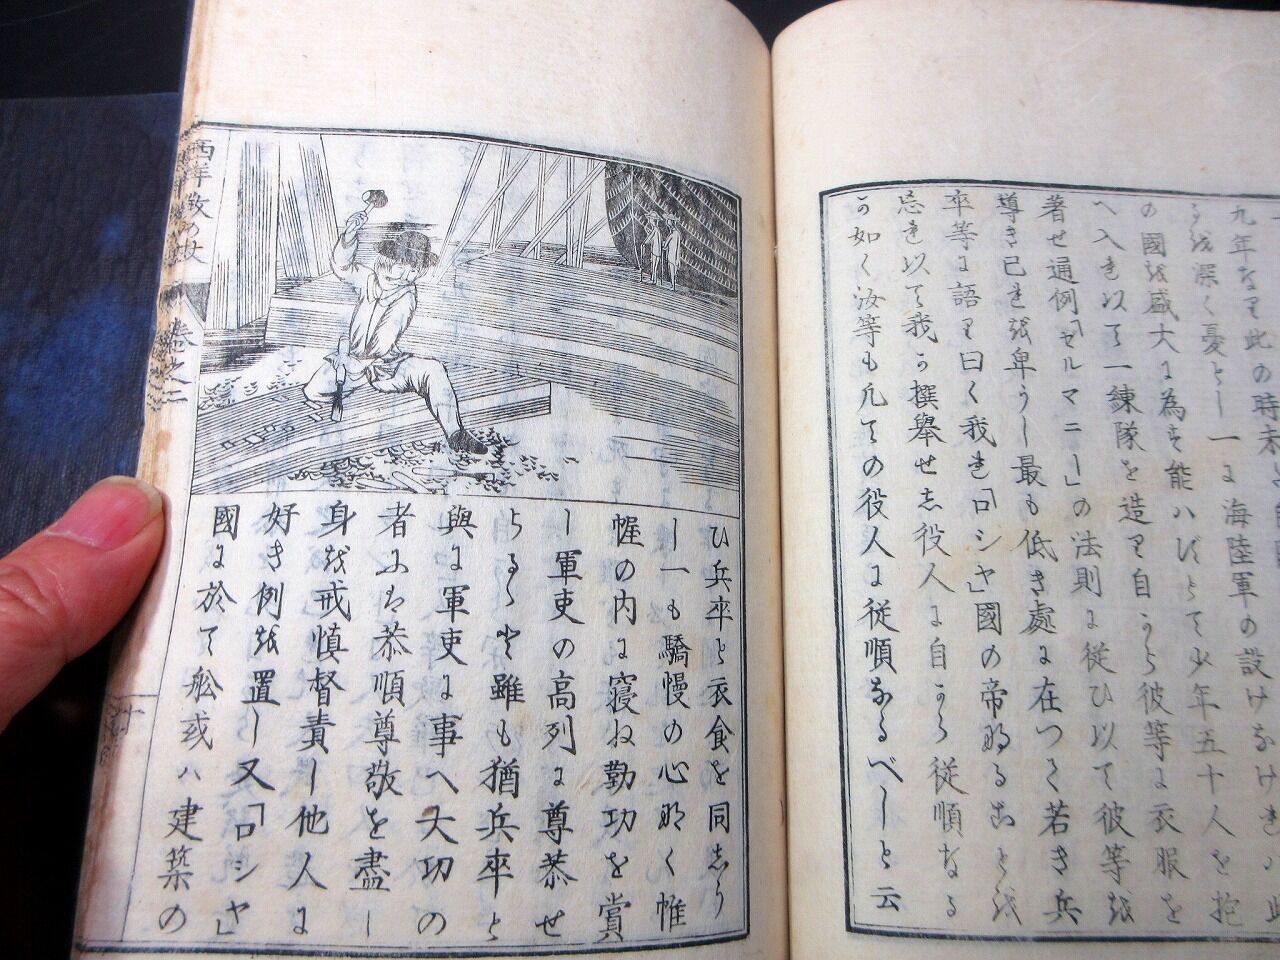 九年なり此の時未
を深く憂とし一に海陸軍の設けなけれハ此
の國を盛大に為を能ハざとて少年五十人を抱
へ入れ以て一練隊を造り自から彼等に衣服を
著せ通例「セルマニー」の法則に従ひ以て彼等を
導き己れを卑うし最も低き處に在つて若き兵
卒等に語り曰く我れ「ロシヤ」國の帝なることを
忘れ以て我が撰舉せし役人に自から従順なる
が如く汝等も凡ての役人に従順なるべしと云
ひ兵卒と衣食を同じう
し一も驕慢の心なく帷
幄の内に寝ね勤功を賞
し軍吏の高列に尊恭せ
らるゝと雖も猶兵卒と
與に軍吏に事へ大功の
者には恭順尊敬を盡し
身を戒慎督責し他人に
好き例を置し又「ロシヤ」
國に於て舩或ハ建築の
西洋教の蚑 巻之二
十